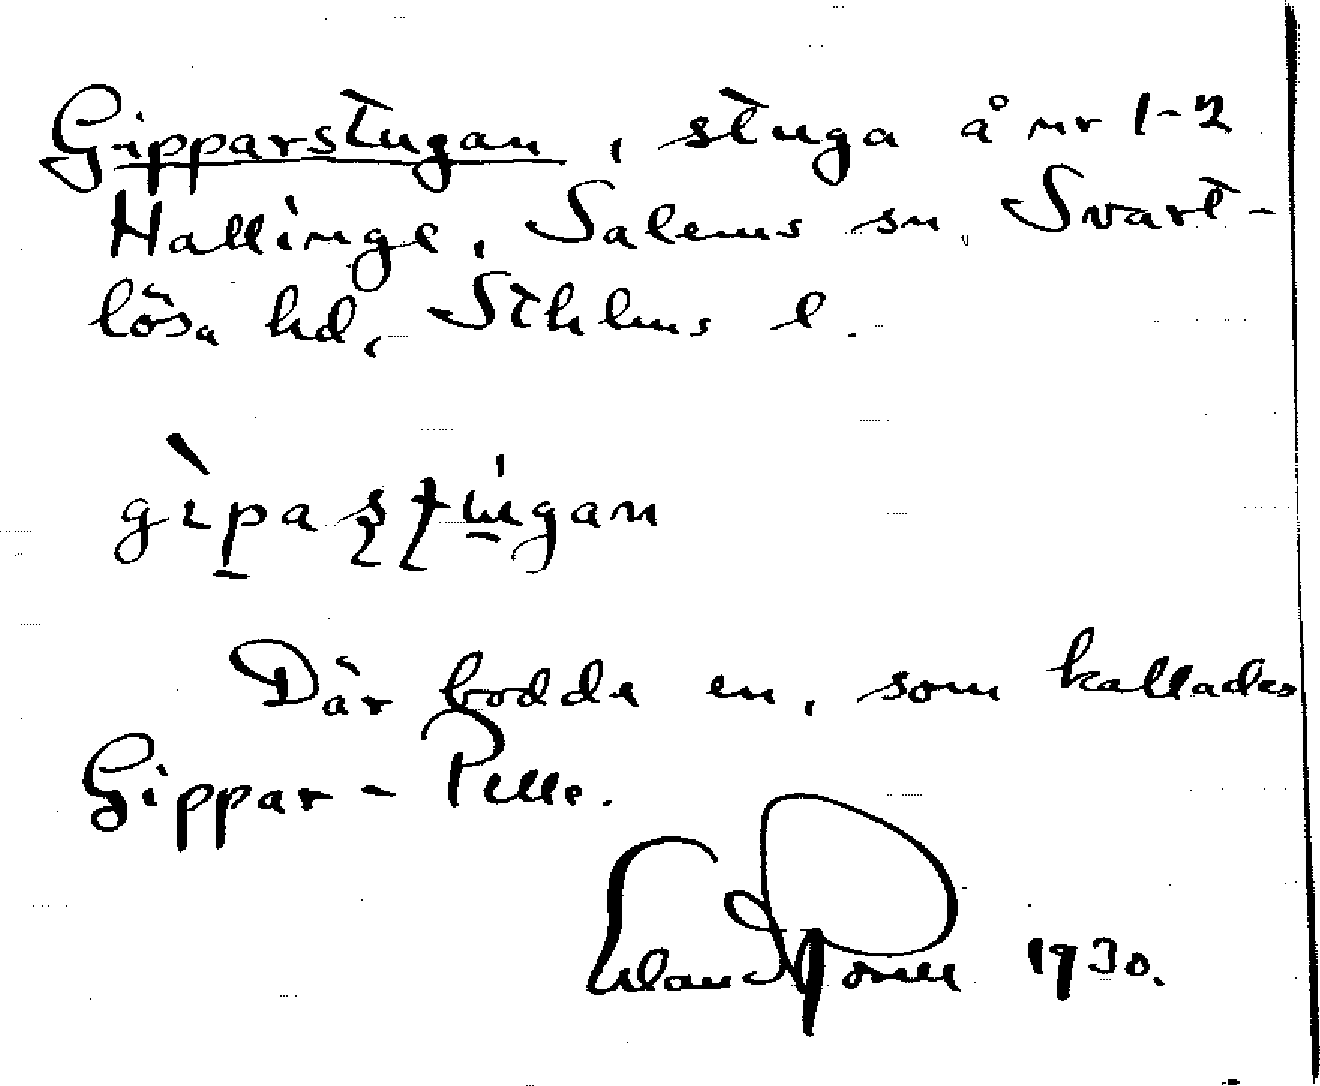 Gipparstugan, stuga å nr 1-2
Hallinge, Salems sn, Svart-
lösa hd, Sthlms l.
Där bodde en, som kallades
Gippar-Pelle.
Erland Rosell 1930.